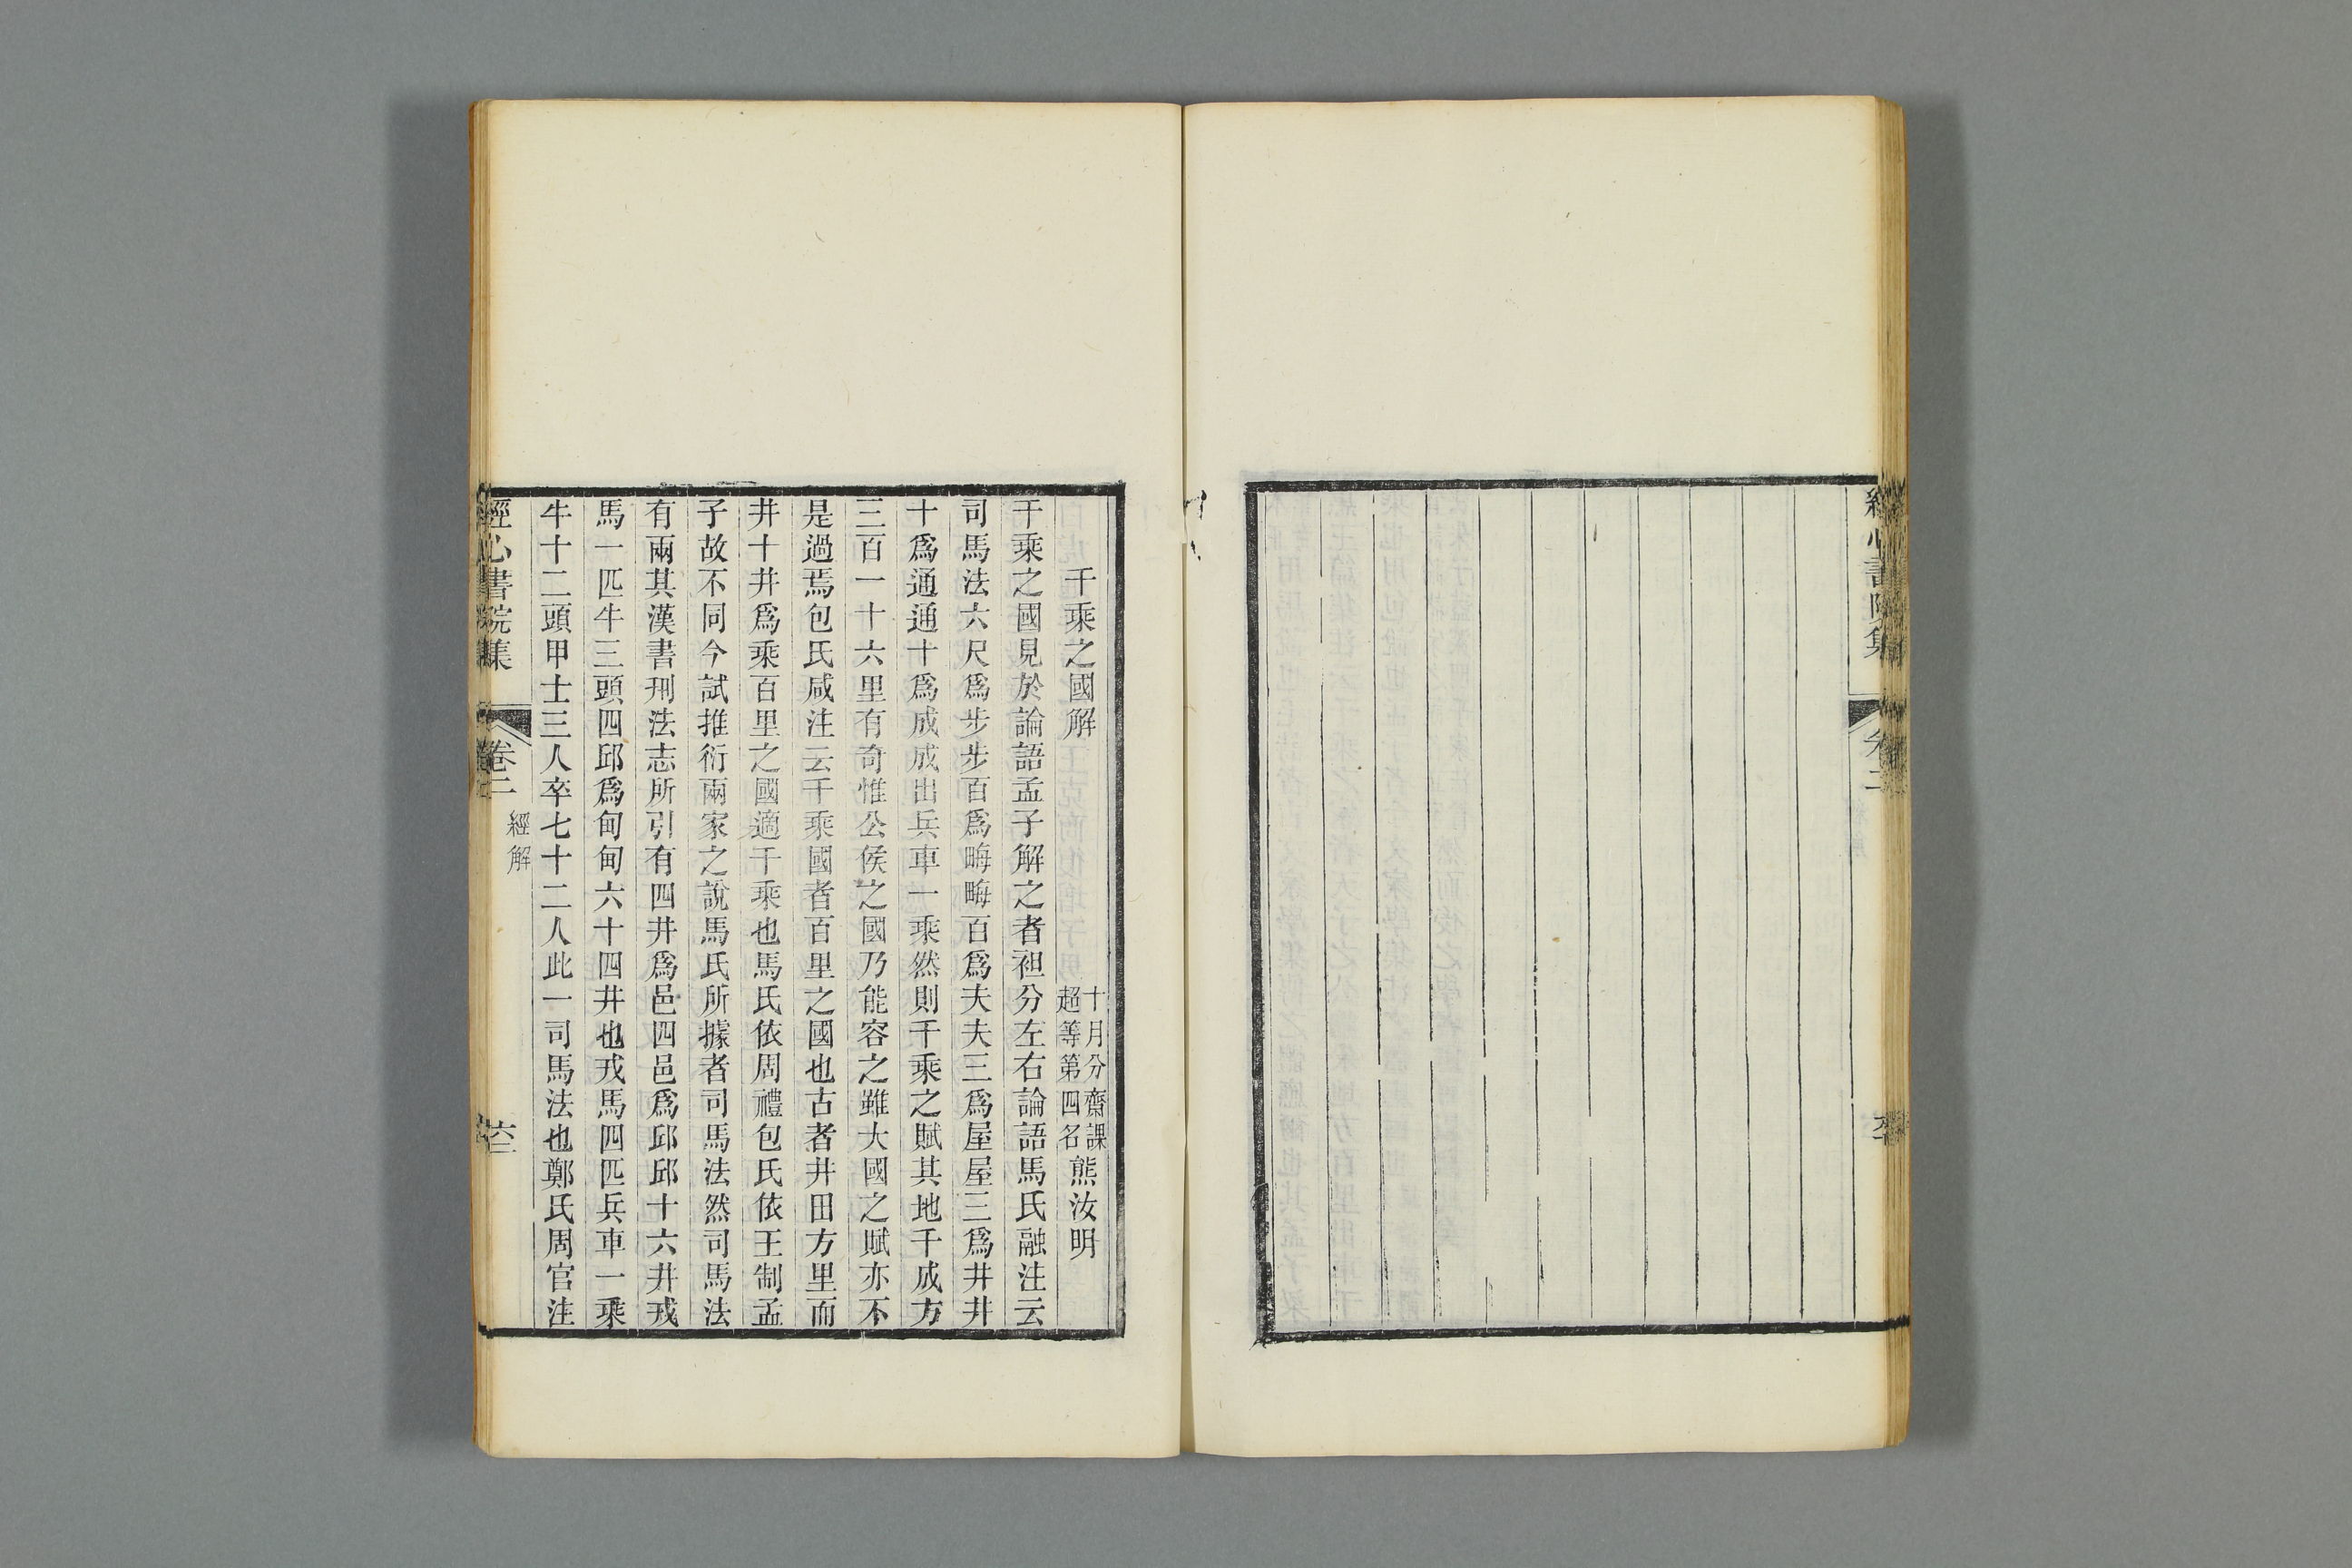 經心書院集
卷二
千乘之國解
十月分齋課
超等第四名
熊汝明
千乘之國見於論語孟子解之者袒分左右論語馬氏融注云
司馬法六尺爲步步百爲畮畮百爲夫夫三爲屋屋三爲井井
十爲通通十爲成成出兵車一乘然則千乘之賦其地千成方
三百一十六里有奇惟公侯之國乃能容之雖大國之賦亦不
是過焉包氏咸注云千乘國者百里之國也古者井田方里而
井十井爲乘百里之國適千乘也馬氏依周禮包氏依王制孟
子故不同今試推衍兩家之說馬氏所據者司馬法然司馬法
有兩其漢書刑法志所引有四井爲邑四邑爲邱邱十六井戎
馬一匹牛三頭四邱爲甸甸六十四井也戎馬四匹兵車一乘
牛十二頭甲士三人卒七十二人此一司馬法也鄭氏周官注
經心書院集
卷二
經解